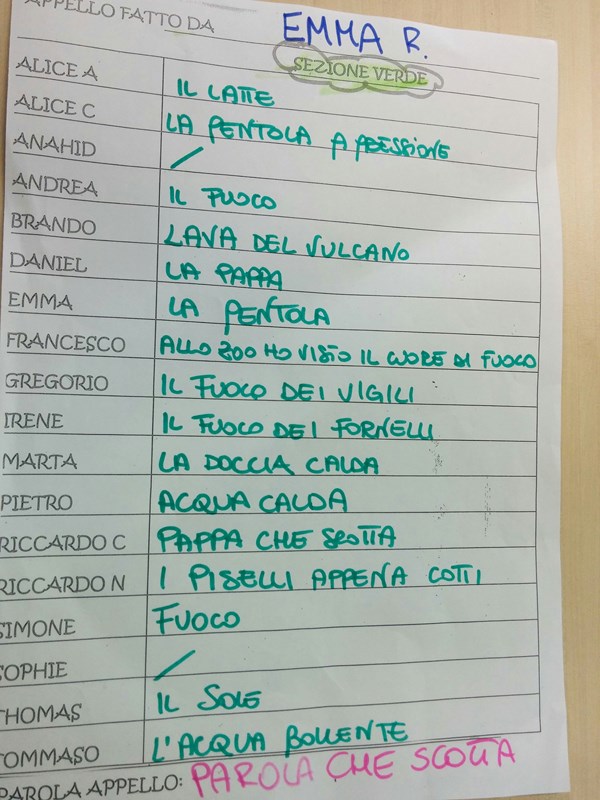 APPELLO FATTO DA EMMA R.
SEZIONE VERDE
ALICE A IL LATTE
ALICE C LA PENTOLA A PRESSIONE
ANAHID /
ANDREA IL FUOCO
BRANDO LAVA DEL VULCANO
DANIEL LA PAPPA
EMMA LA PENTOLA
FRANCESCO ALLO ZOO HO VISTO IL CUORE DI FUOCO
GREGORIO IL FUOCO DEI VIGILI
IRENE IL FUOCO DEI FORNELLI
MARTA LA DOCCIA CALDA
PIETRO ACQUA CALDA
RICCARDO C PAPPA CHE SCOTTA
RICCARDO N I PISELLI APPENA COTTI
SIMONE FUOCO
SOPHIE /
THOMAS IL SOLE
TOMMASO L'ACQUA BOLLENTE
PAROLA APPELLO: PAROLA CHE SCOTTA